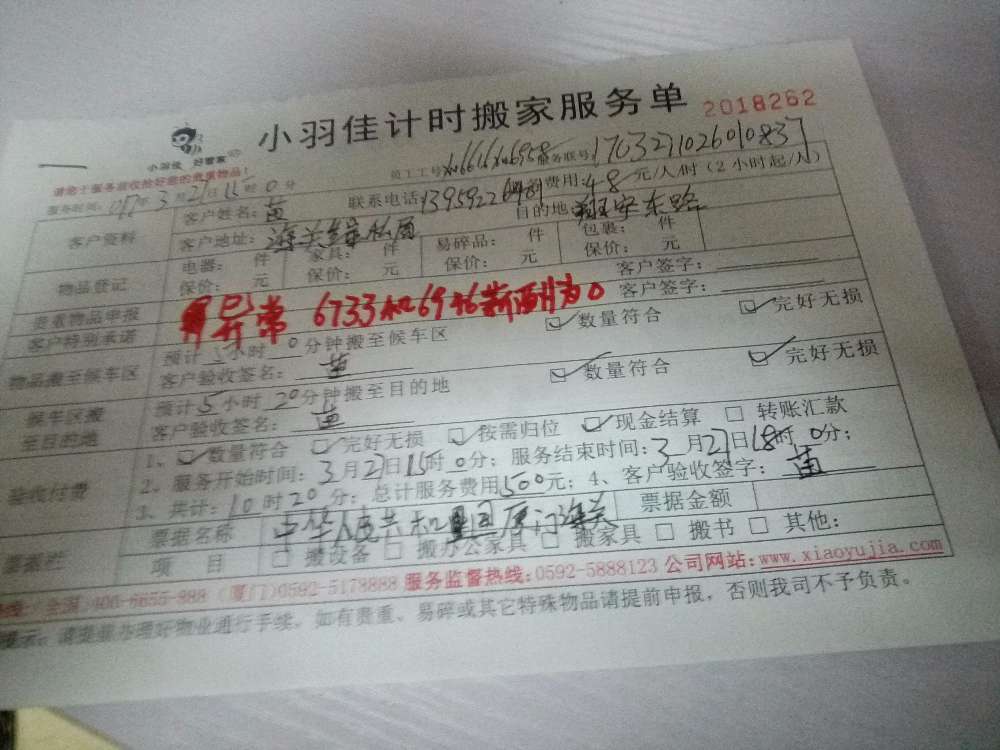 小羽佳计时搬家服务单 2018262
小羽佳 好管家
请您于服务前收拾好您的贵重物品!
员工工号 xm6616xm6958 服务联号 1703271026010837
服务时间: 年3月27日15时0分 联系电话 费用:48元/人/时(2小时起/人)
客户资料 客户姓名:苗 目的地:翔安东路
客户地址:海关
物品登记 电器: 件 家具: 件 易碎品: 件 包裹: 件
保价: 元 保价: 元 保价: 元 保价: 元
贵重物品申报 客户签字:
客户特别承诺 已异常 6733和6946薪酬为0 客户签字:
物品搬至候车区 预计 小时 0分钟搬至候车区 数量符合 完好无损
客户验收签名:苗
候车区搬至目的地 预计5小时20分钟搬至目的地 数量符合 完好无损
客户验收签名:苗
验收付费 1、 数量符合 完好无损 按需归位 现金结算 转账汇款
2、服务开始时间:3月27日15时0分;服务结束时间:3月27日18时0分;
3、共计:10时20分;总计服务费用500元;4、客户验收签字:苗
票据名称 中华人民共和国厦门海关 票据金额
项 目 搬设备 搬办公家具 搬家具 搬书 其他:
(全国)400-6655-888 (厦门)0592-5178888 服务监督热线:0592-5888123 公司网站:www.xiaoyujia.com
办理好物业通行手续。如有贵重、易碎或其它特殊物品请提前申报,否则我司不予负责。